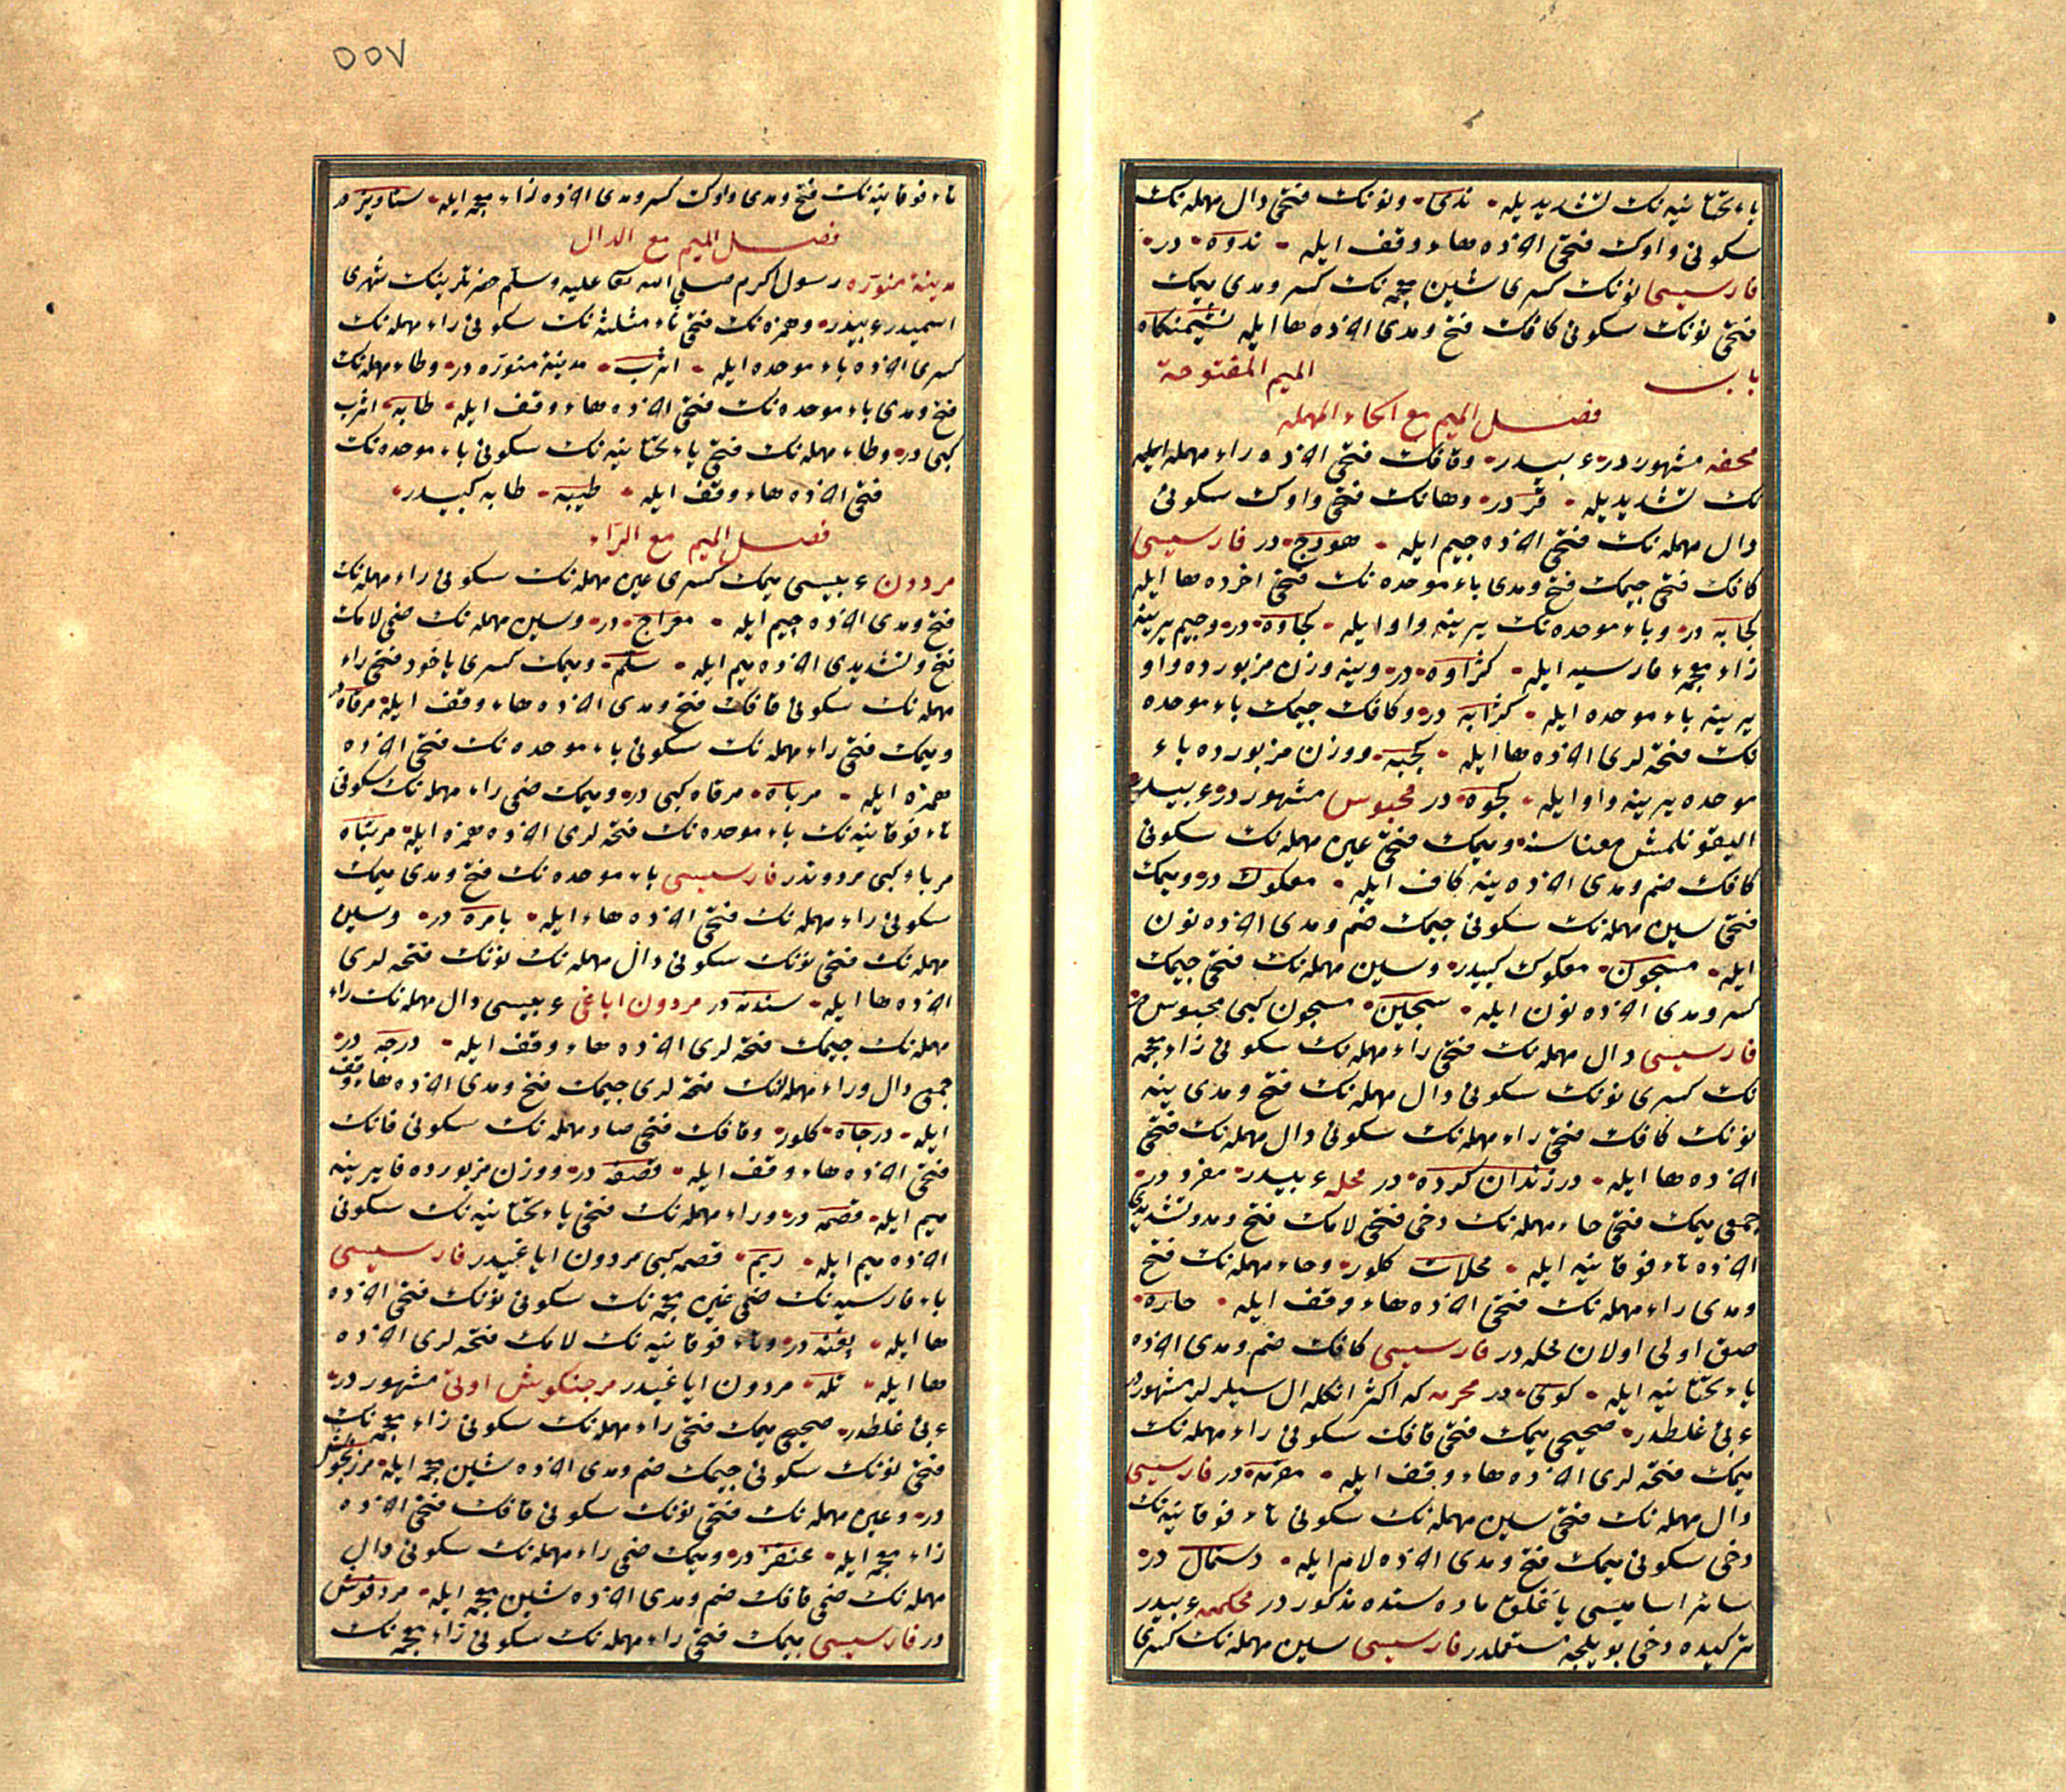 باء تحتانیه نك تشدیدیله ندی ونونك فتحی دال مهمله نك
سكونی واوك فتحی اخرده هاء وقف ایله ندوه در
فارسیسی نونك كسری شین معجمه نك كسر ومدی میمك
فتحی نونك سكونی كافك فتح ومدی اخرده ها ایله نشیمنكاه
باب المیم المفتوحة
فصل المیم مع الحاء المهمله
محفه مشهوردر ءبیدر وقافك فتحی اخرده راء مهمله ایله
نك تشدیدیله قر در وهانك فتحی واوك سكونی
دال مهمله نك فتحی اخرده جیم ایله هودج در فارسیسی
كافك فتحی جیمك فتح ومدی باء موحده نك فتحی اخرده ها ایله
كجابه در وباء موحده نك یرینه واو ایله كجاوه در وجیم یرینه
زاء معجمهء فارسیه ایله كژاوه در وینه وزن مزبورده واو
یرینه باء موحده ایله كژابه در وكافك جیمك باء موحده
نك فتحه لری اخرده ها ایله كجبه ووزن مزبورده باء
موحده یرینه واو ایله كجوه در محبوس مشهوردر ءبیدر
الیقونلمش معناسنه ومیمك فتحی عین مهمله نك سكونی
كافك ضم ومدی اخرده ینه كاف ایله معكوك در ومیمك
فتحی سین مهمله نك سكونی جیمك ضم ومدی اخرده نون
ایله مسجون معكوك كبیدر وسین مهمله نك فتحی جیمك
كسر ومدی اخرده نون ایله سجین مسجون كبی محبوس در
فارسیسی دال مهمله نك فتحی راء مهمله نك سكونی زاء معجمه
نك كسری نونك سكونی دال مهمله نك فتح ومدی ینه
نونك كافك فتحی راء مهمله نك سكونی دال مهمله نك فتحی
اخرده ها ایله درزندان كرده در محله ءبیدر مفرددر
جمعی میمك فتحی حاء مهمله نك دخی فتحی لامك فتح ومد وتشدیدی
اخرده تاء فوقانیه ایله محلات كلور وحاء مهمله نك فتح
ومدی راء مهمله نك فتحی اخرده هاء وقف ایله حاره
صق اولی اولان محله در فارسیسی كافك ضم ومدی اخرده
یاء تحتانیه ایله كوی در محرمه كه اكثر انكله ال سیلرلر مشهوردر
ءبی غلطدر صحیحی میمك فتحی قافك سكونی راء مهمله نك
میمك فتحه لری اخرده هاء وقف ایله مقرمه در فارسیسی
دال مهمله نك فتحی سین مهمله نك سكونی تاء فوقانیه نك
دخی سكونی میمك فتح ومدی اخرده لام ایله دستمال در
سائر اسامیسی یاغلق ماده سنده مذكوردر محكمه ءبیدر
تركیده دخی بویلجه مستعملدر فارسیسی سین مهمله نك كسری
٥٥٧
تاء فوقانیه نك فتح ومدی واوك كسر ومدی اخرده زاء معجمه ایله ستاویز در
فصل المیم مع الدال
مدینهٔ منوره رسول اكرم صلی الله تعالی علیه وسلم حضرتلرینك شهری
اسمیدر ءبیدر وهمزه نك فتحی ثاء مثلثه نك سكونی راء مهمله نك
كسری اخرده باء موحده ایله اثرب مدینهٔ منوره در وطاء مهمله نك
فتح ومدی باء موحده نك فتحی اخرده هاء وقف ایله طابه اثرب
كبی در وطاء مهمله نك فتحی یاء تحتانیه نك سكونی باء موحده نك
فتحی اخرده هاء وقف ایله طیبه طابه كبیدر
فصل المیم مع الراء
مردون ءبیسی میمك كسری عین مهمله نك سكونی راء مهمله نك
فتح ومدی اخرده جیم ایله معراج در وسین مهمله نك ضمی لامك
فتح وتشدیدی اخرده میم ایله سلم ومیمك كسری یاخود فتحی راء
مهمله نك سكونی قافك فتح ومدی اخرده هاء وقف ایله مرقاه در
ومیمك فتحی راء مهمله نك سكونی باء موحده نك فتحی اخرده
همزه ایله مرباه مرقاه كبی در ومیمك ضمی راء مهمله نك سكونی
تاء فوقانیه نك باء موحده نك فتحه لری اخرده همزه ایله مرتباه
مرباء كبی مردوندر فارسیسی باء موحده نك فتح ومدی میمك
سكونی راء مهمله نك فتحی اخرده هاء ایله بامره در وسین
مهمله نك فتحی نونك سكونی دال مهمله نك نونك فتحه لری
اخرده ها ایله سندنه در مردون ایاغی ءبیسی دال مهمله نك راء
مهمله نك جیمك فتحه لری اخرده هاء وقف ایله درجه در
جمعی دال وراء مهمله نك فتحه لری جیمك فتح ومدی اخرده هاء وقف
ایله درجاه كلور وقافك فتحی صاد مهمله نك سكونی فانك
فتحی اخرده هاء وقف ایله قصفه در ووزن مزبورده فا یرینه
میم ایله قصمه در وراء مهمله نك فتحی یاء تحتانیه نك سكونی
اخرده میم ایله ریم قصمه كبی مردون ایاغیدر فارسیسی
باء فارسیه نك ضمی غین معجمه نك سكونی نونك فتحی اخرده
ها ایله پغنه در وتاء فوقانیه نك لامك فتحه لری اخرده
ها ایله تله مردون ایاغیدر مرجنكوش اوتی مشهوردر
ءبی غلطدر صحیحی میمك فتحی راء مهمله نك سكونی زاء معجمه نك
فتحی نونك سكونی جیمك ضم ومدی اخرده شین معجمه ایله مرزنجوش
در وعین مهمله نك فتحی نونك سكونی قافك فتحی اخرده
زاء معجمه ایله عنقز در ومیمك ضمی راء مهمله نك سكونی دال
مهمله نك ضمی قافك ضم ومدی اخرده شین معجمه ایله مردقوش
در فارسیسی میمك فتحی راء مهمله نك سكونی زاء معجمه نك